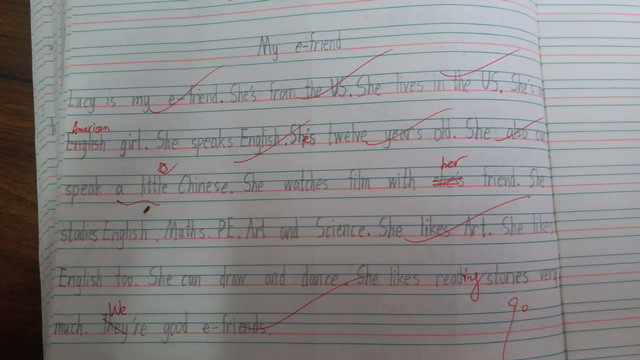 My e-friend
Lucy is my e-friend. She's from the US. She lives in the US. She's
American
English girl. She speaks English. She's twelve years old. She also can
speak a little Chinese. She watches film with she's her friend. She
studies English. Maths. PE. Art and Science. She likes Art. She likes
English too. She can draw and dance. She likes reading stories very
much. They're We good e-friends.
90